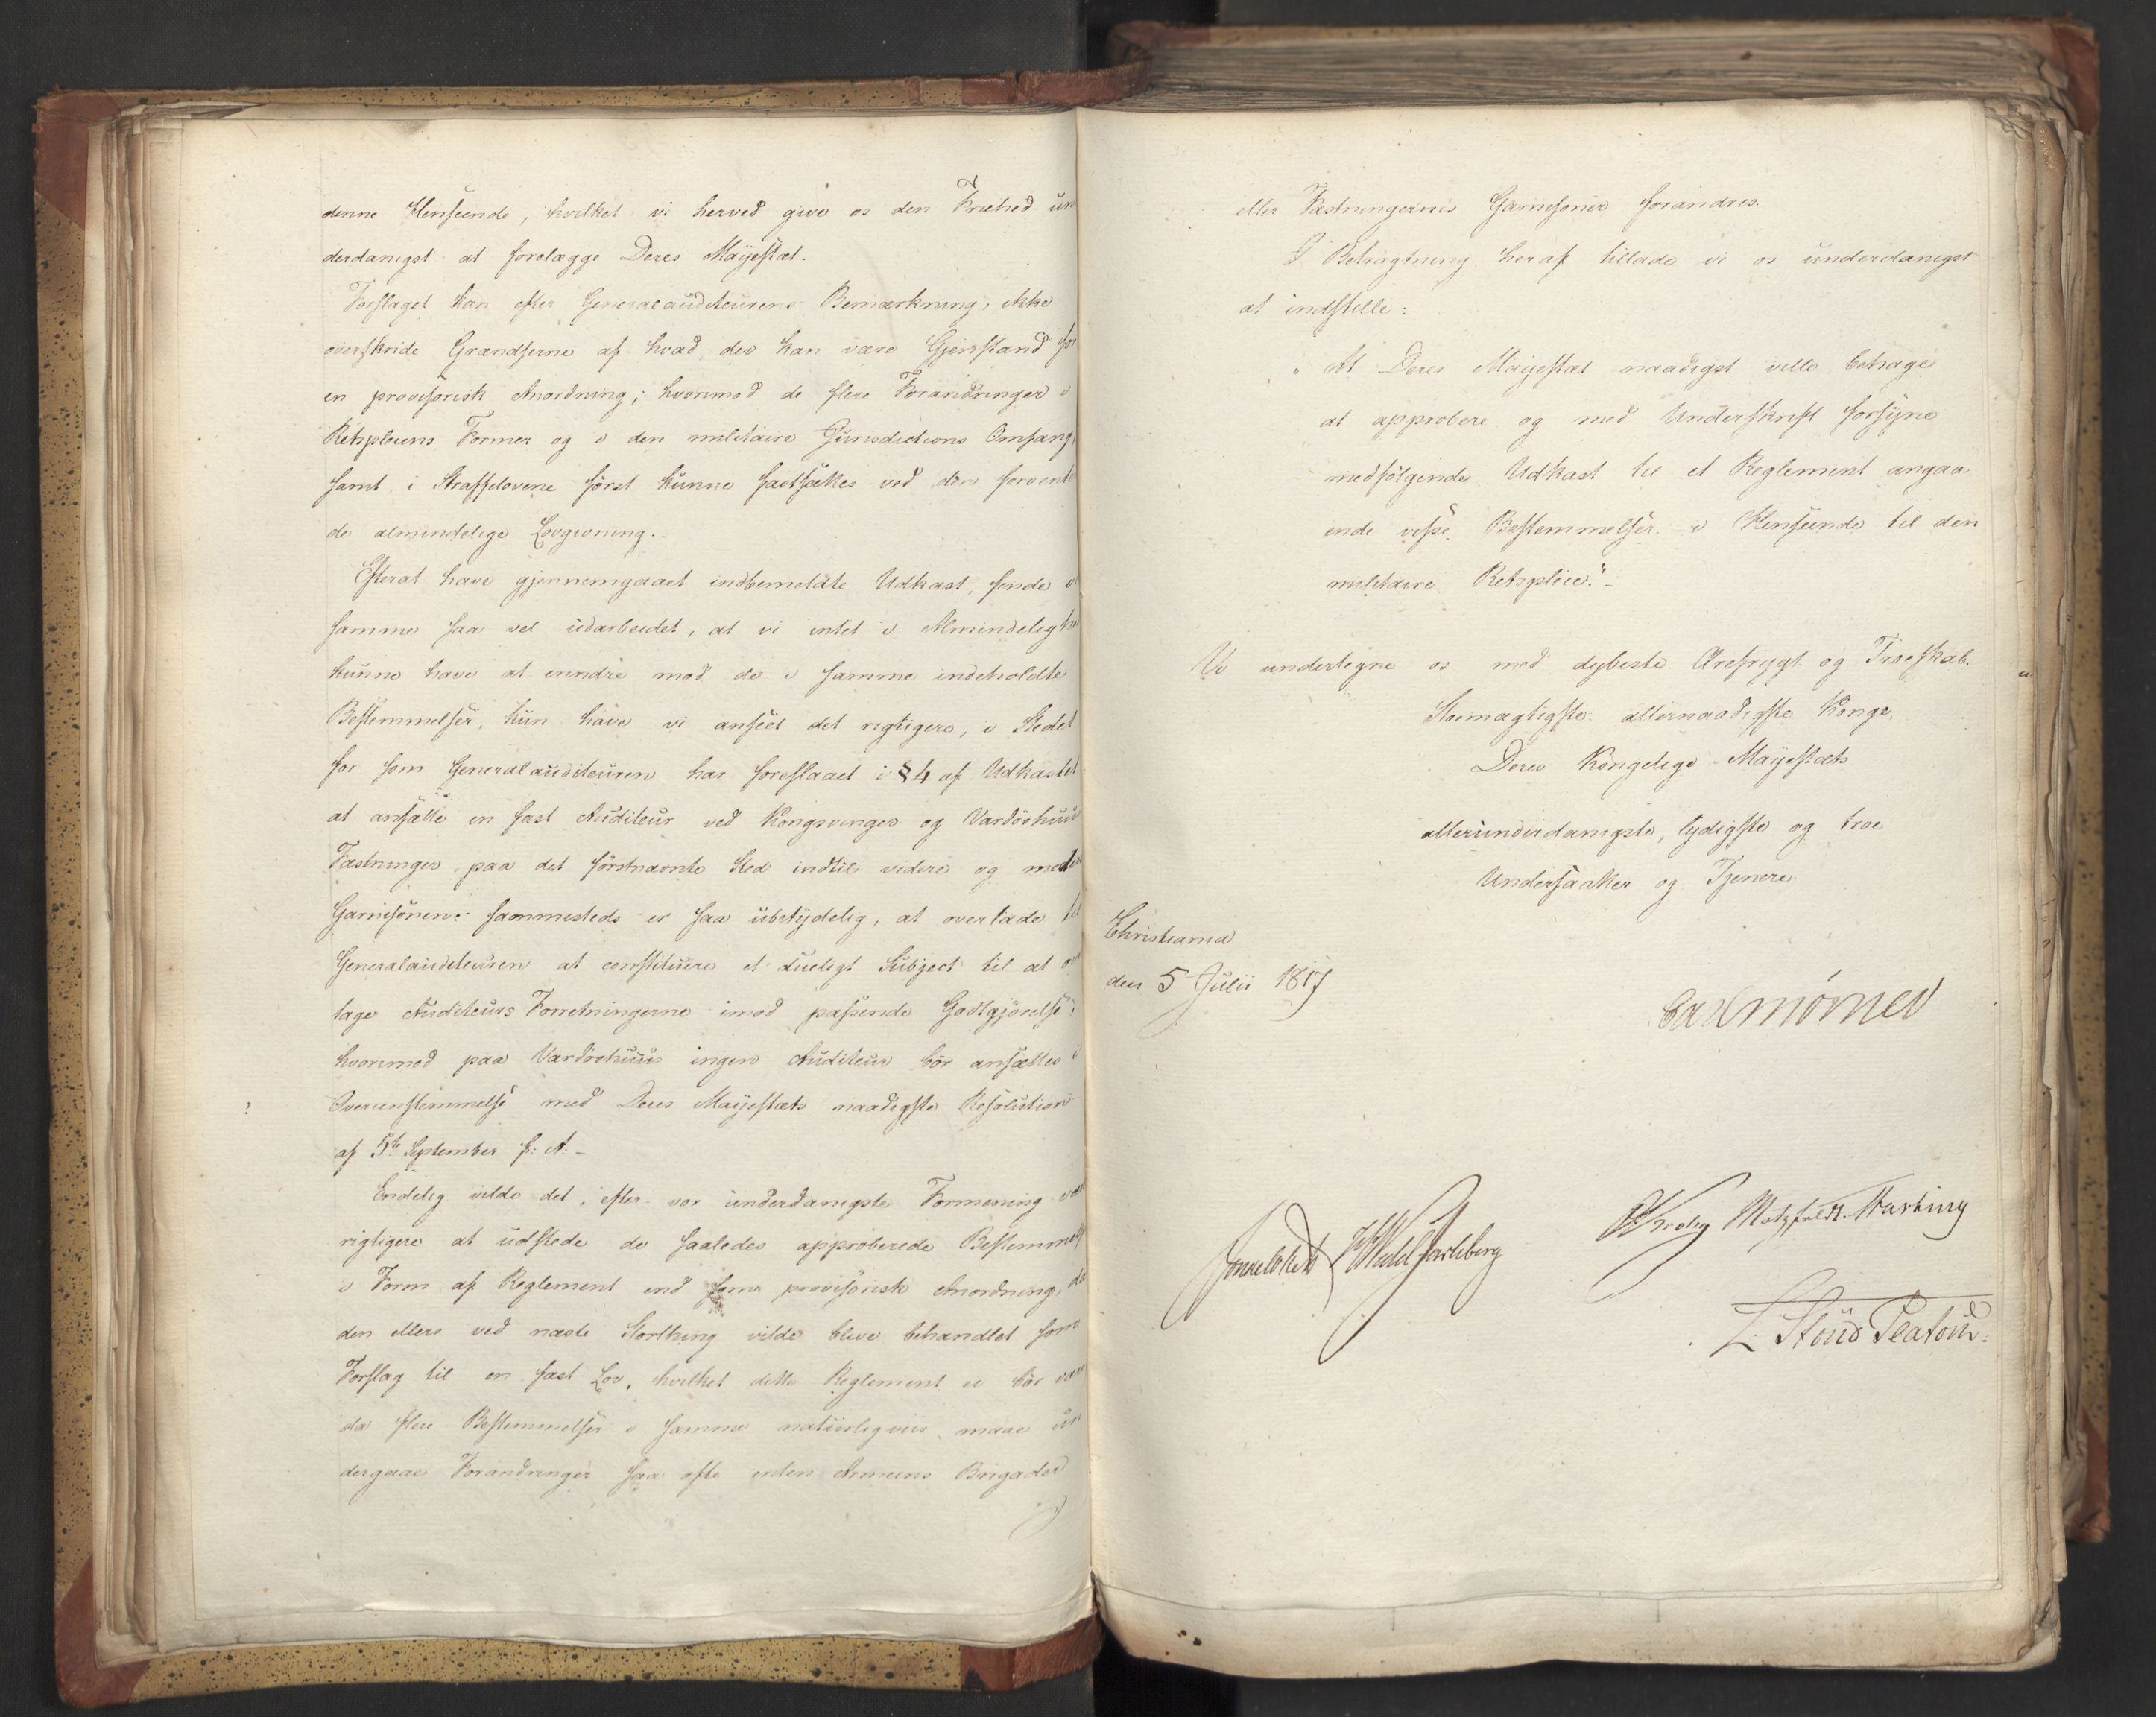 denne Henseende, hvilket vi herved give os den Friehed un
derdanigst at forelægge Deres Mayestæt.
Forslaget kan efter Generalauditeurens Bemærkning, ikke
overskride Grændserne af hvad der kan være Gjenstand for
en provisorisk Anordning; hvorimod de flere Forandringer i
Retspleiens Former og i den militaire Jurisdictions Omfang,
samt i Straffelovene först kunne fastsættes ved den forvente
de almindelige Lovgivning.
Efterat have gjennemgaaet indbemeldte Udkast, finde vi
samme saa vel udarbeidet, at vi intet i Almindelighe
kunne have at erindre mod de i samme indeholdte
Bestemmelser, kun have vi anseet det rigtigere, i Stedet
for som Generalauditeuren har foreslaaet i § 4 af Udkastet
at ansætte en fast Auditeur ved Kongsvinger og Vardöehuus
Fæstninger, paa det förstnævnte Sted indtil videre og medens
Garnisonen sammesteds er saa ubetydelig, at overlade til
Generalauditeuren at constituere et dueligt Subject til at ved
tage Auditeurs Forretningerne imod passende Godtgjörelse;
hvorimod paa Vardöehuus ingen Auditeur bör ansættes i
Overeenstemmelse med Deres Mayestæts naadigste Resolution
af 5te September f: A: -
Endelig vilde det, efter vor underdanigste Formening være
rigtigere at udstede de saaledes approberede Bestemmels
i Form af Reglement end som provisorisk Anordning, da
den ellers ved næste Storthing vilde blive behandlet som
Forslag til en fast Lov, hvilket dette Reglement ei bör være
da flere Bestemmelser i samme naturligviis maae un
dergaae Forandringer saa ofte enten Armeens Brigader
eller Fæstningernes Garnisoner forandres.
I Betragtning heraf tillade vi os underdanigst
at indstille:
"At Deres Mayestæt naadigst ville behage
at approbere og med Underskrift forsyne
medfölgende Udkast til et Reglement angaa
ende visse Bestemmelser i Henseende til den
militaire Retspleie." -
Vi undertegne os med dybeste Ærefrygt og Troeskab.
Stormægtigste allernaadigste Konge,
Deres Kongelige Mayestæts
allerunderdanigste, lydigste og troe
Undersaatter og Tjenere
Christiania
den 5 Julii 1817
Carl Mörner
Sommerfeldt HWedel Jarlsberg
Krohg Motzfeldt. Fasting
L. Stoud Platou.